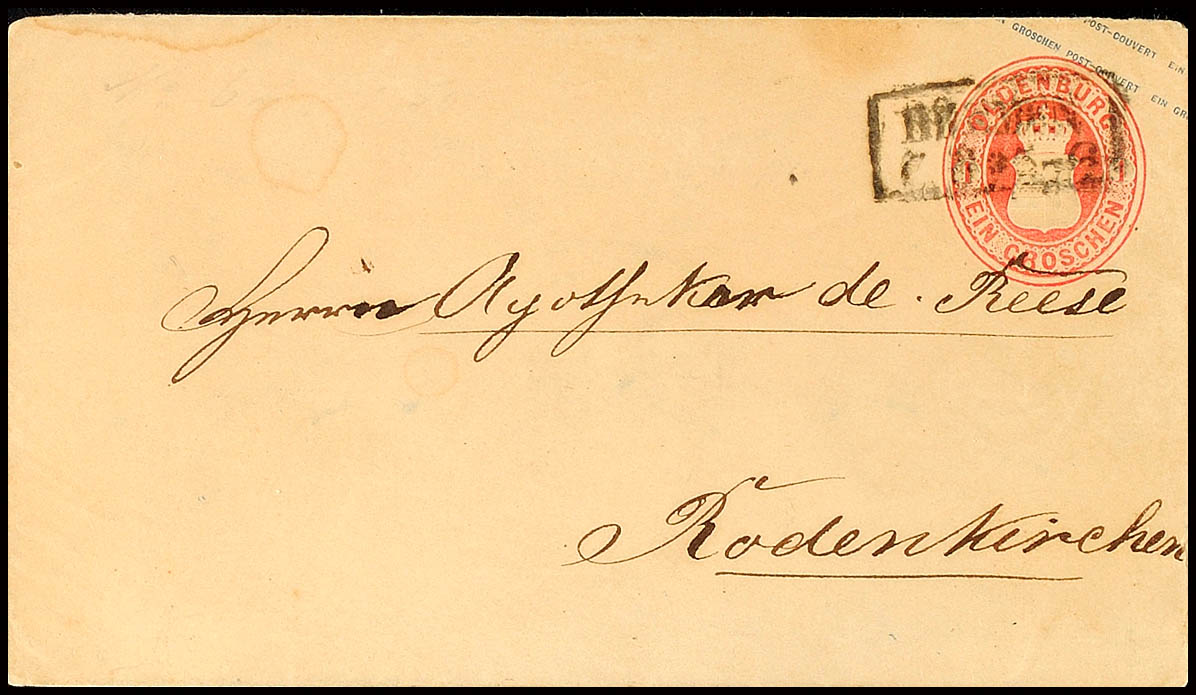 POST-COUVERT EIN
GROSCHEN POST-COUVERT EIN GR
OLDENBURG
1 1
EIN GROSCHEN
Herrn Apotheker de Reese
Rodenkirchen